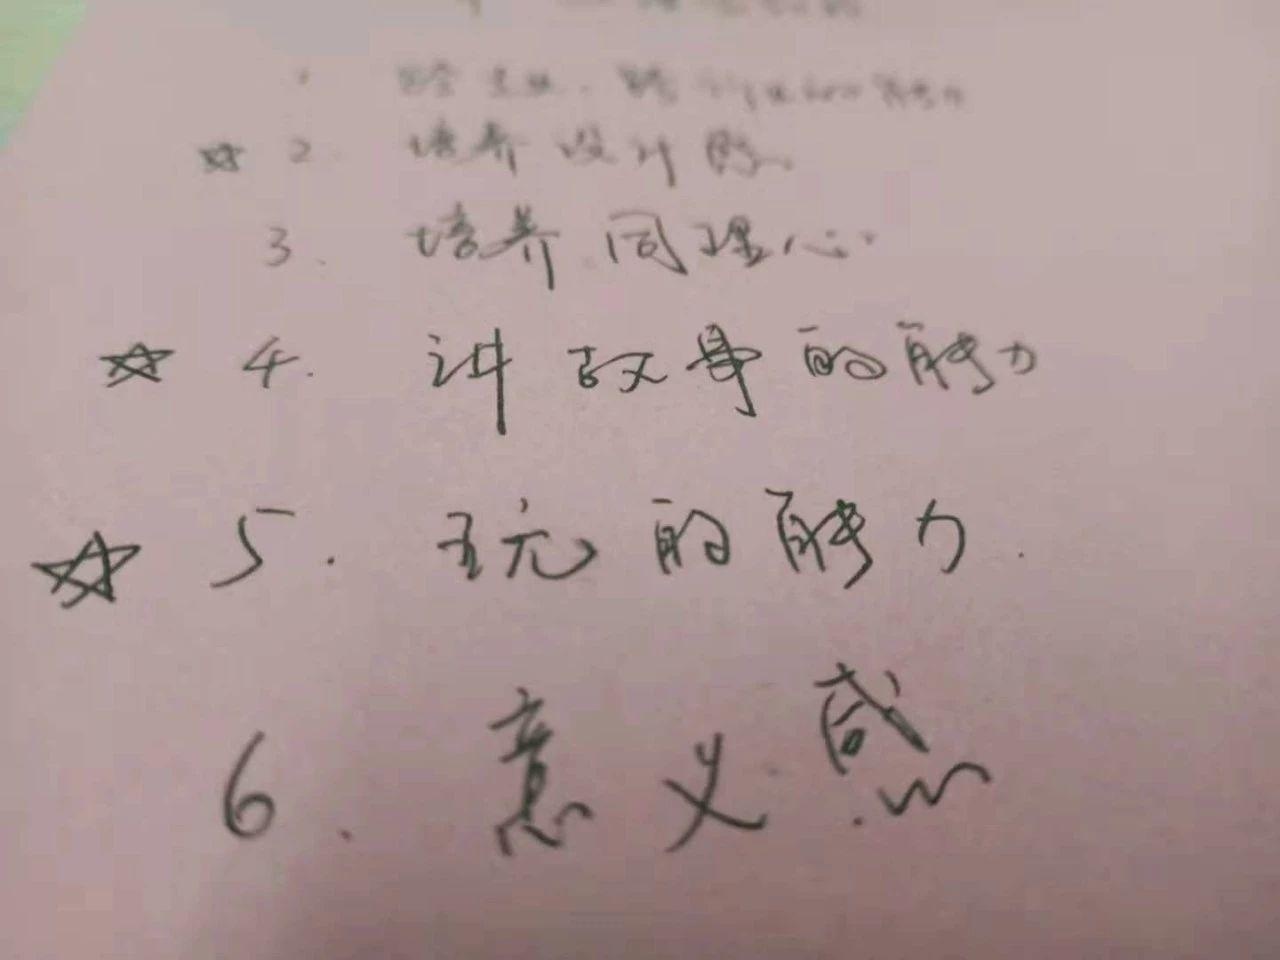 ☆ 2. 培养设计感
3. 培养同理心.
☆ 4. 讲故事的能力
☆ 5. 玩的能力.
6. 意义感